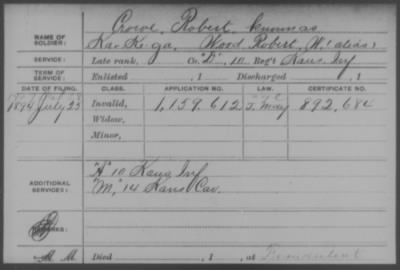 Crowe, Robert, known as
NAME OF SOLDIER: Kar-Ki-ga, Wood Robert, W. (alias)
SERVICE: Late rank, Co. "D", 10 Reg't Kans. Inf
TERM OF SERVICE: Enlisted , 1 Discharged , 1
DATE OF FILING. CLASS. APPLICATION NO. LAW. CERTIFICATE NO.
1894 July 23 Invalid, 1,159,612 892,684
Widow,
Minor,
"A" 10 Kans Inf
ADDITIONAL SERVICES: "M," 14 Kans Cav.
REMARKS:
Died , 1 , at